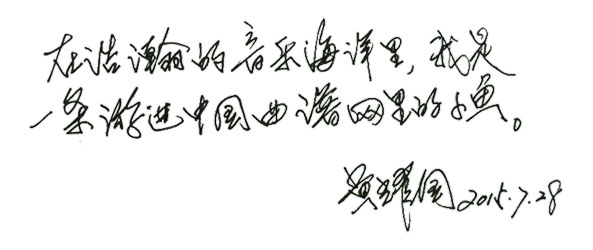 在浩瀚的音乐海洋里,我是
一条游进中国曲谱网里的小鱼。
耀国 2015.7.28